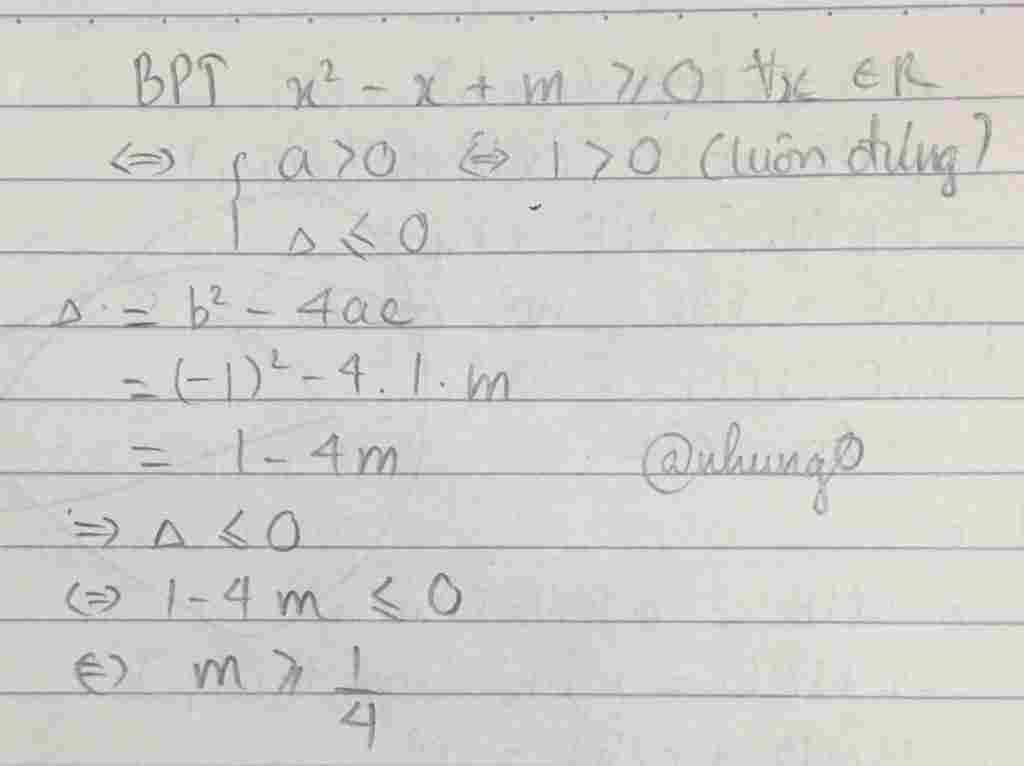 BPT x² - x + m ⩾ 0 ∀x ∈ R
<=> { a > 0 <=> 1 > 0 (luôn đúng)
Δ ⩽ 0
Δ = b² - 4ac
= (-1)² - 4 . 1 . m
= 1 - 4m
@nhung0
=> Δ ⩽ 0
<=> 1 - 4m ⩽ 0
<=> m ⩾ 1/4